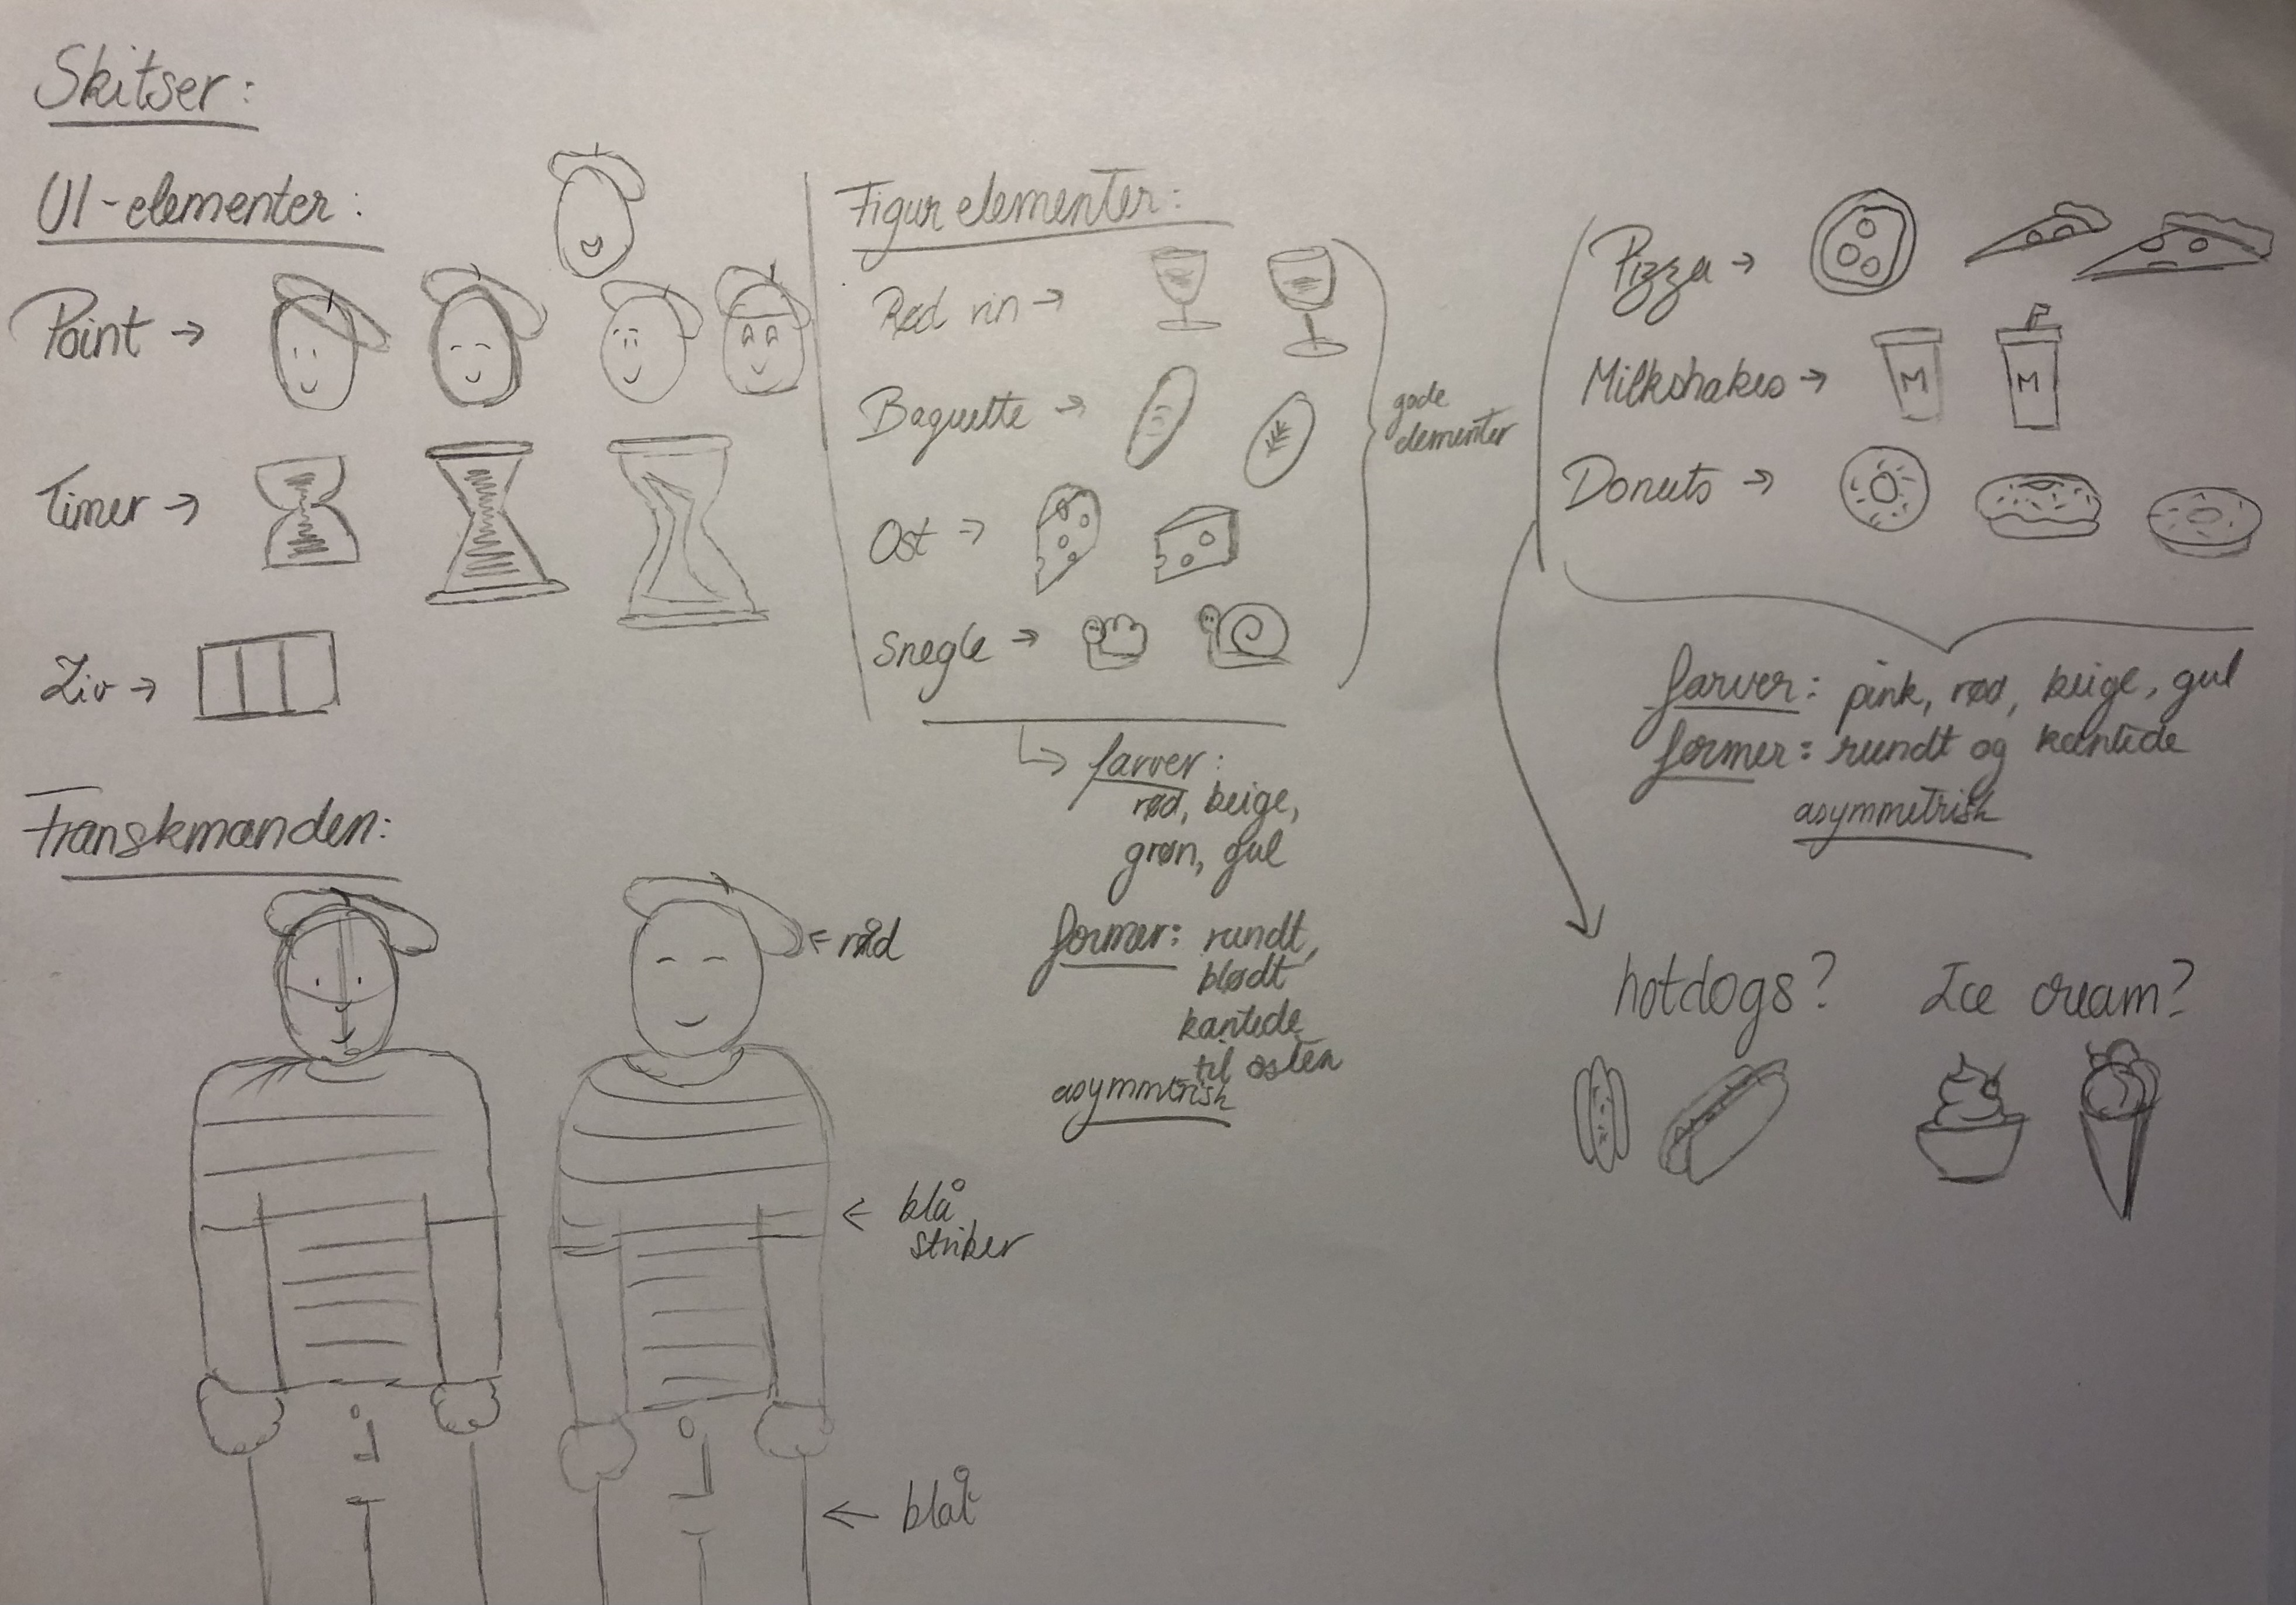 Skitser:
UI-elementer:
Point →
Timer →
Liv →
Franskmanden:
← rød
← blå
striber
← blåt
Figur elementer:
Rød vin →
Baguette →
Ost →
Snegle →
gode
elementer
farver:
rød, beige,
grøn, gul
former: rundt,
blødt
kantede
til osten
asymmetrisk
Pizza →
Milkshakes →
M
M
Donuts →
farver: pink, rød, beige, gul
former: rundt og kantede
asymmetrisk
hotdogs?
Ice cream?